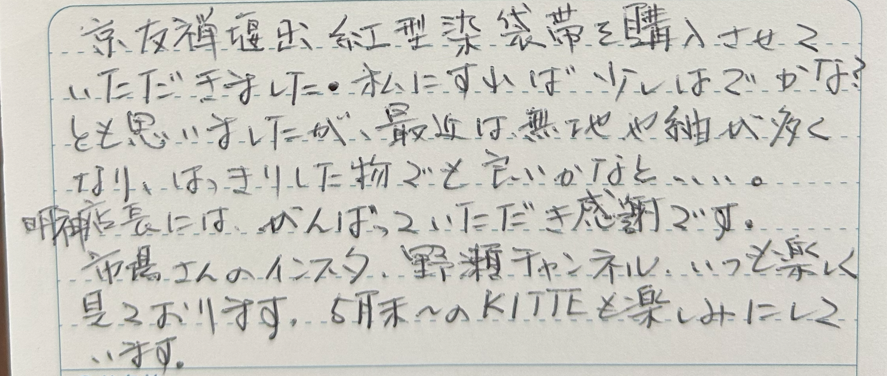 京友禅堰出 紅型染袋帯を購入させて
いただきました。私にすれば 少しはでかな?
とも思いましたが、最近は無地や紬が多く
なり、はっきりした物でも良いかなと、、、、。
明神店長には、がんばっていただき感謝です。
市場さんのインスタ、野瀬チャンネル、いつも楽しく
見ております。5月末〜のKITTEも楽しみにして
います。